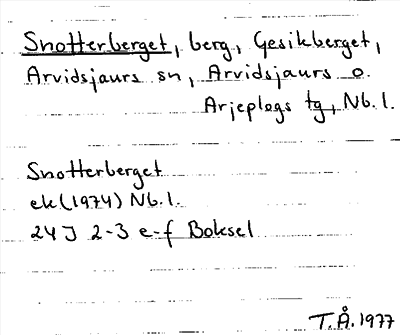 Snotterberget, berg, Gesikberget,
Arvidsjaurs sn, Arvidsjaurs o.
Arjeplogs tg, Nb.l.
Snotterberget
ek(1974) Nb.l.
24J 2-3 e-f Boksel
T.Å.1977